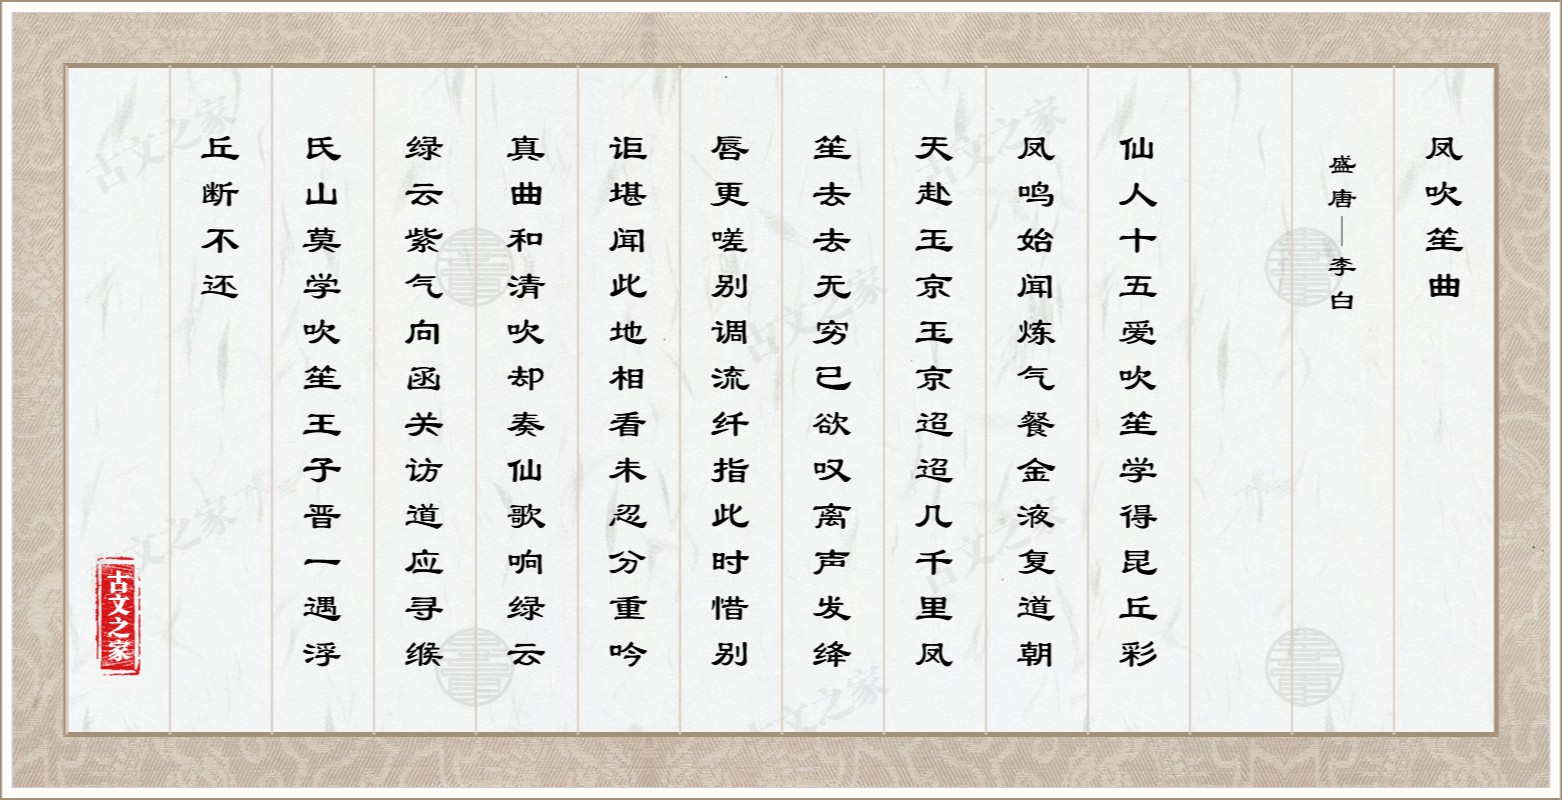 凤吹笙曲
盛唐—李白
仙人十五爱吹笙学得昆丘彩
凤鸣始闻炼气餐金液复道朝
天赴玉京玉京迢迢几千里凤
笙去去无穷已欲叹离声发绛
唇更嗟别调流纤指此时惜别
讵堪闻此地相看未忍分重吟
真曲和清吹却奏仙歌响绿云
绿云紫气向函关访道应寻缑
氏山莫学吹笙王子晋一遇浮
丘断不还
古文之家